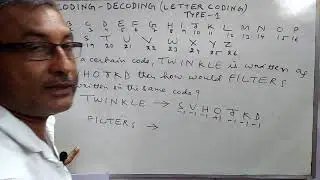 CODING - DECODING (LETTER CODING)
TYPE-1
C D E F G H I J K L M N O P
3 4 5 6 7 8 9 10 11 12 13 14 15 16
S T U V W X Y Z
19 20 21 22 23 24 25 26
a certain code, TWINKLE is written as
SVHOJKD then how would FILTERS
written in the same code?
TWINKLE → SVHOJKD
-1 -1 -1 +1 -1 -1 -1
FILTERS →